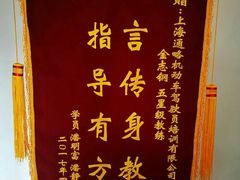 赠：上海通略机动车驾驶员培训有限公司
金志钢 五星级教练
言传身教
指导有方
学员 潘明富 潘静
二〇一七年